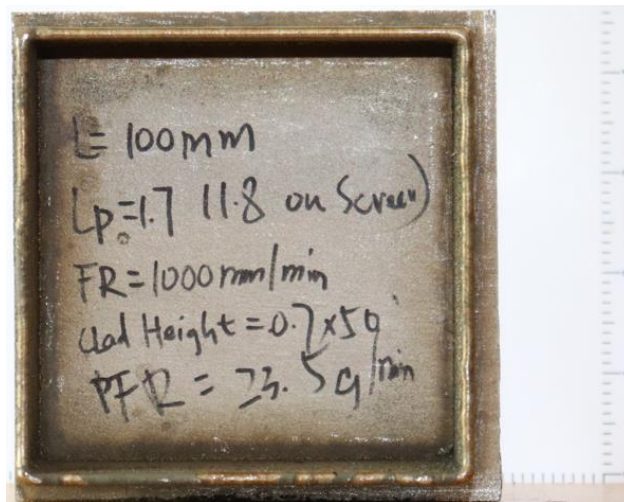 L=100mm
Lp=1.7 (1.8 on Screen)
FR=1000mm/min
Clad Height=0.7x50
PFR=23.5g/min